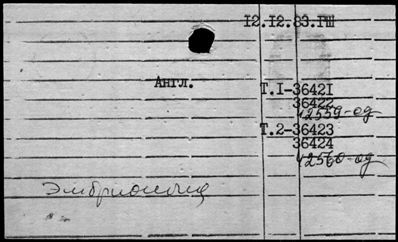 12.12.83.ГШ
Англ.
Т.1-36421
36422
42559-од
Т.2-36423
36424
42560-од
Эмбриология